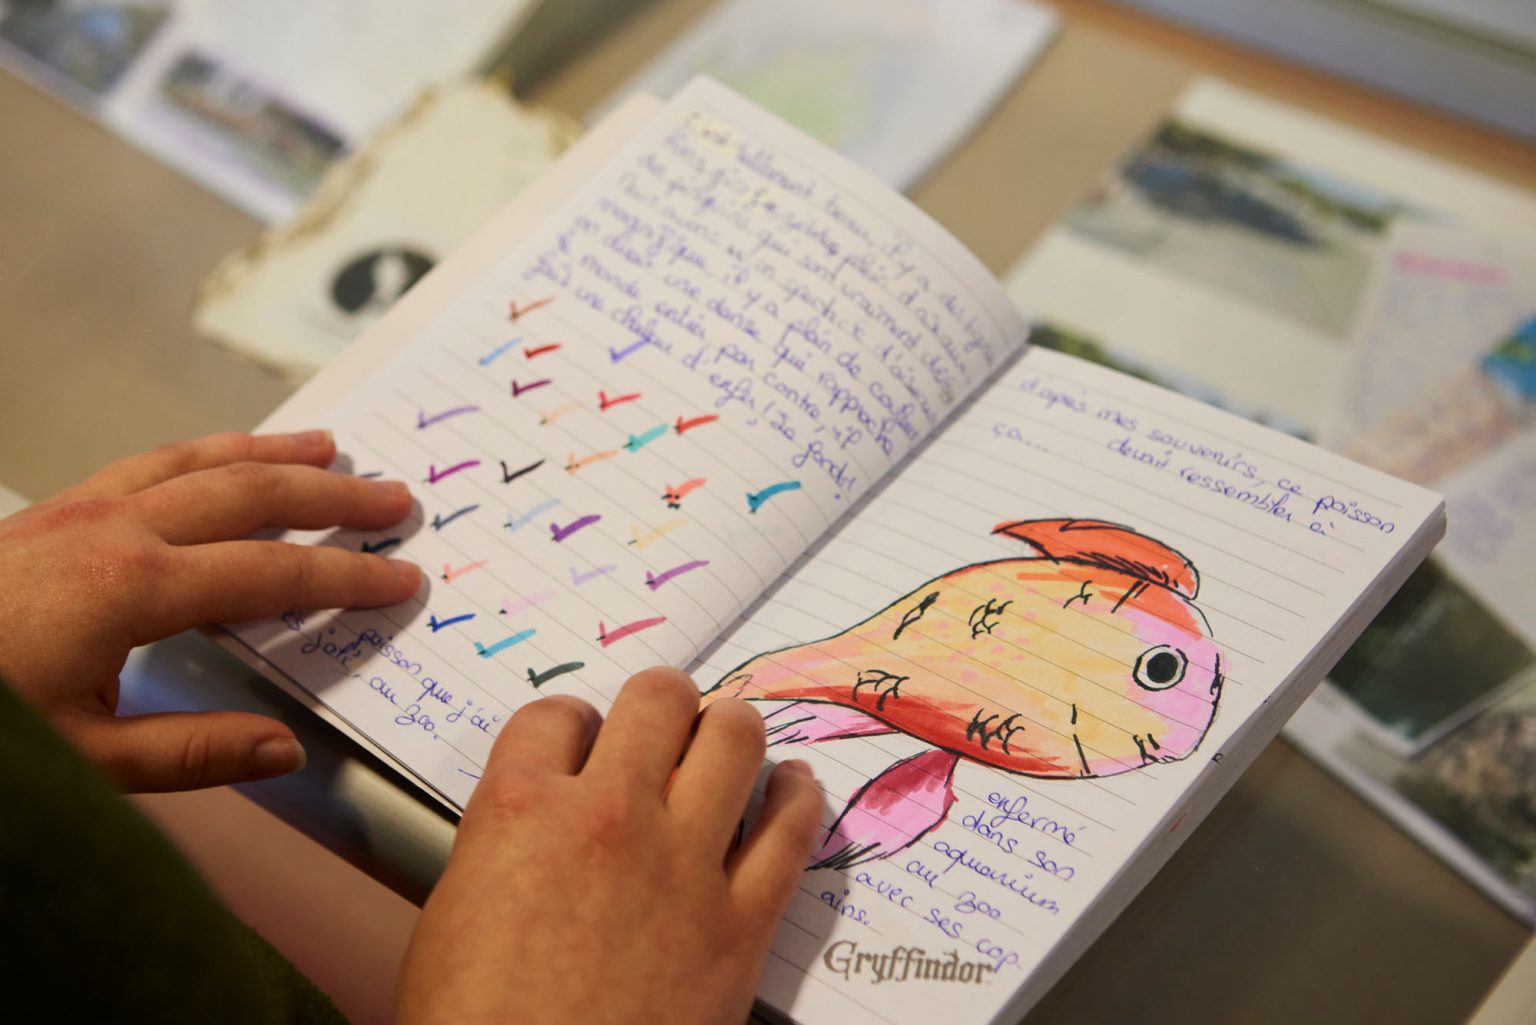 tellement beau, il y a des tigres
plein d'oiseaux
qui sont vraiment
un spectacle d'oiseaux
magnifique, il y a plein de couleurs
on dirait une danse qui rapproche
le monde entier par contre, il
fait une chaleur d'enfer! Je fonds!
poisson que j'ai
au zoo.
d'après mes souvenirs, ce poisson
devait ressembler à
ça...
enfermé
dans son
aquarium
au zoo
avec ses cop-
ains.
Gryffindor